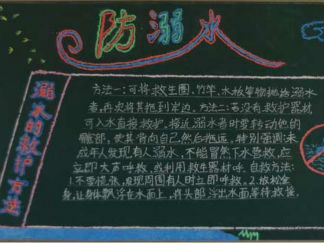 防溺水
溺水的救护方法
方法一:可将救生圈、竹竿、水板等物抛给溺水
者,再次将其拖到岸边。方法二:若没有救护器材
可入水直接救护。接近溺水者时要转动他的
髋部,使其背向自己然后拖运。特别强调:未
成年人发现有人溺水,不能冒然下水营救,应
立即大声呼救,或利用救生器材呼。自救方法:
1.不要慌张,发现周围有人时立即呼救。2.放松全
身,让身体飘浮在水面上,将头部浮出水面等待救援。